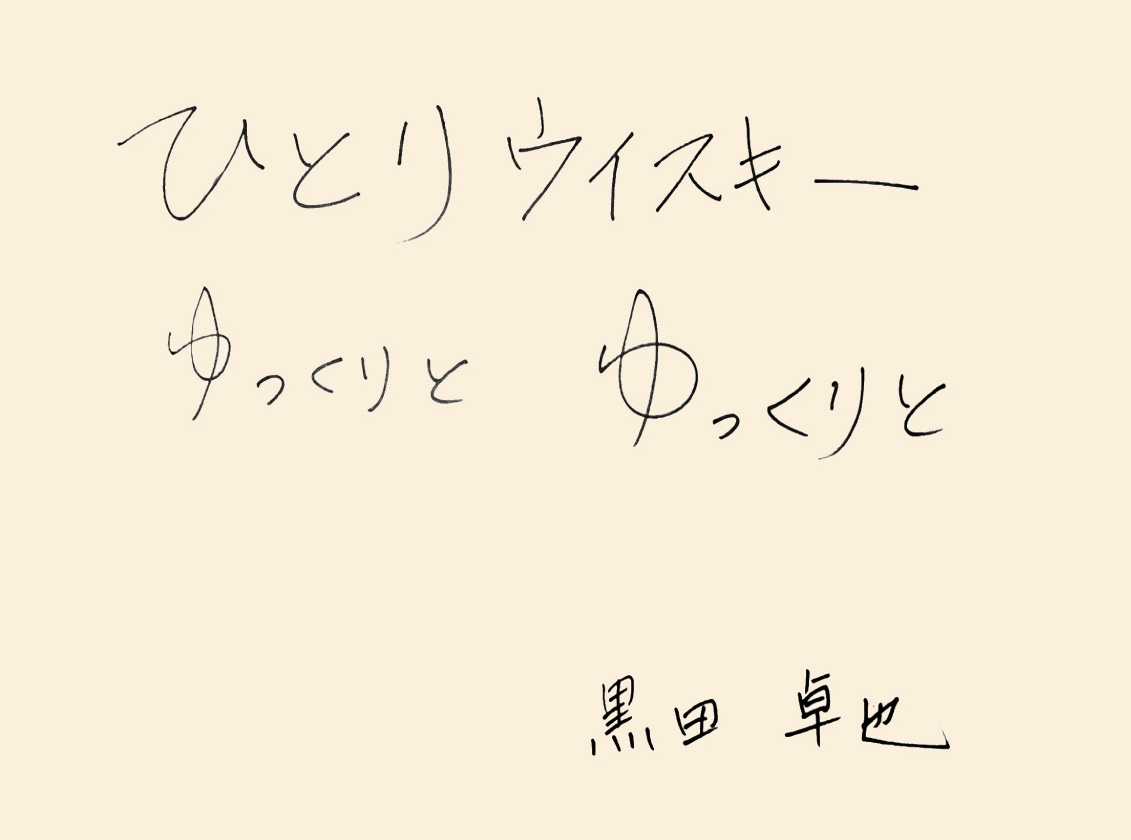 ひとりウイスキー
ゆっくりと ゆっくりと
黒田 卓也